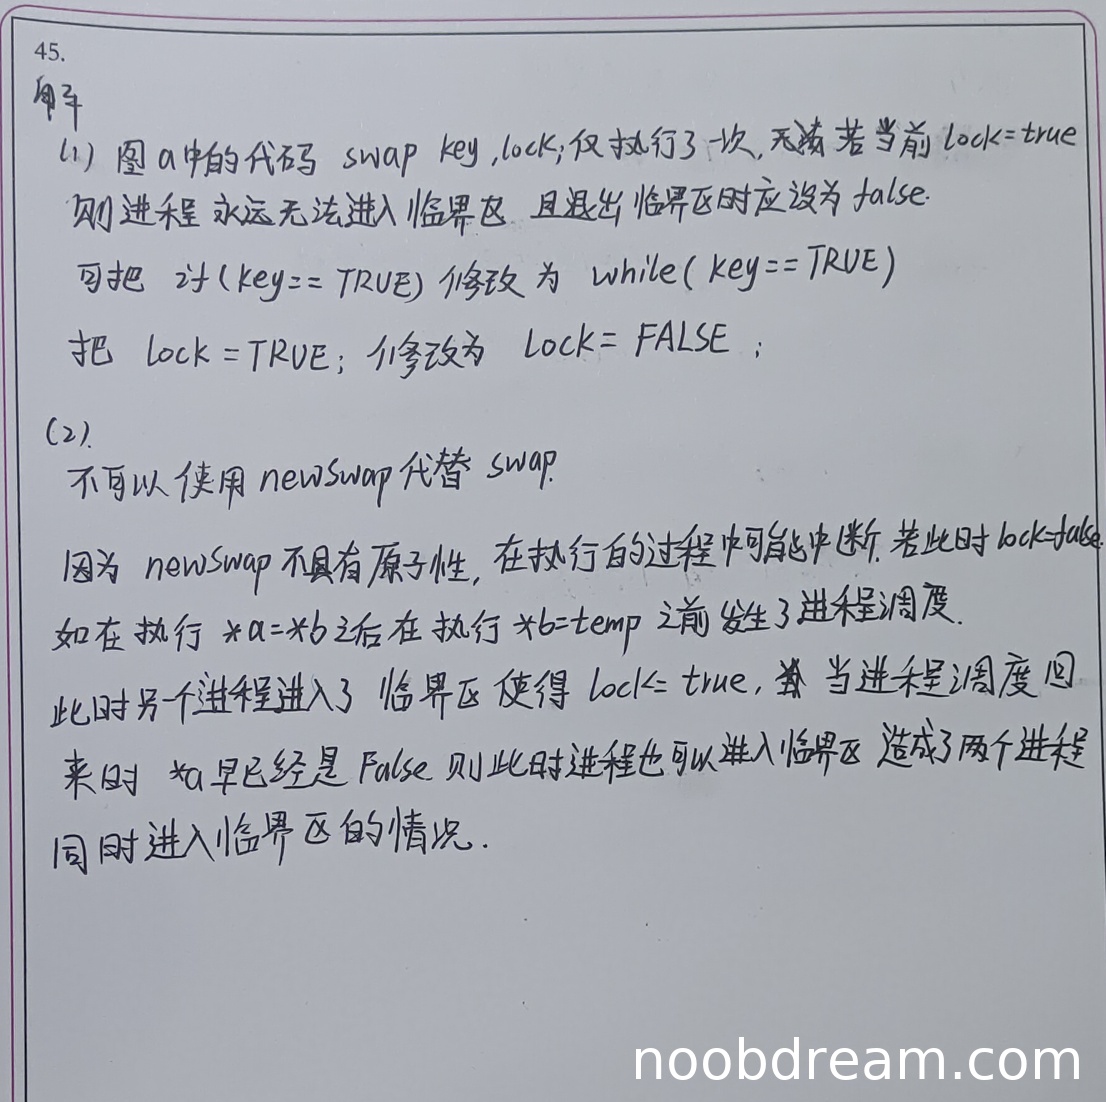 45.
解
(1) 图a中的代码 swap key,lock;仅执行了一次,若当前 lock=true
则进程永远无法进入临界区 且退出临界区时应设为false.
可把 if(key== TRUE) 修改为 while(key==TRUE)
把 lock=TRUE; 修改为 lock= FALSE ;
(2).
不可以使用newSwap代替 swap.
因为 newSwap不具有原子性,在执行的过程中可能中断.若此时lock=false.
如在执行 *a=*b之后在执行 *b=temp 之前发生了进程调度.
此时另个进程进入了 临界区 使得 lock= true, 当进程调度回
来时 *a早已经是 False 则此时进程也可以进入临界区 造成了两个进程
同时进入临界区的情况.
noobdream.com